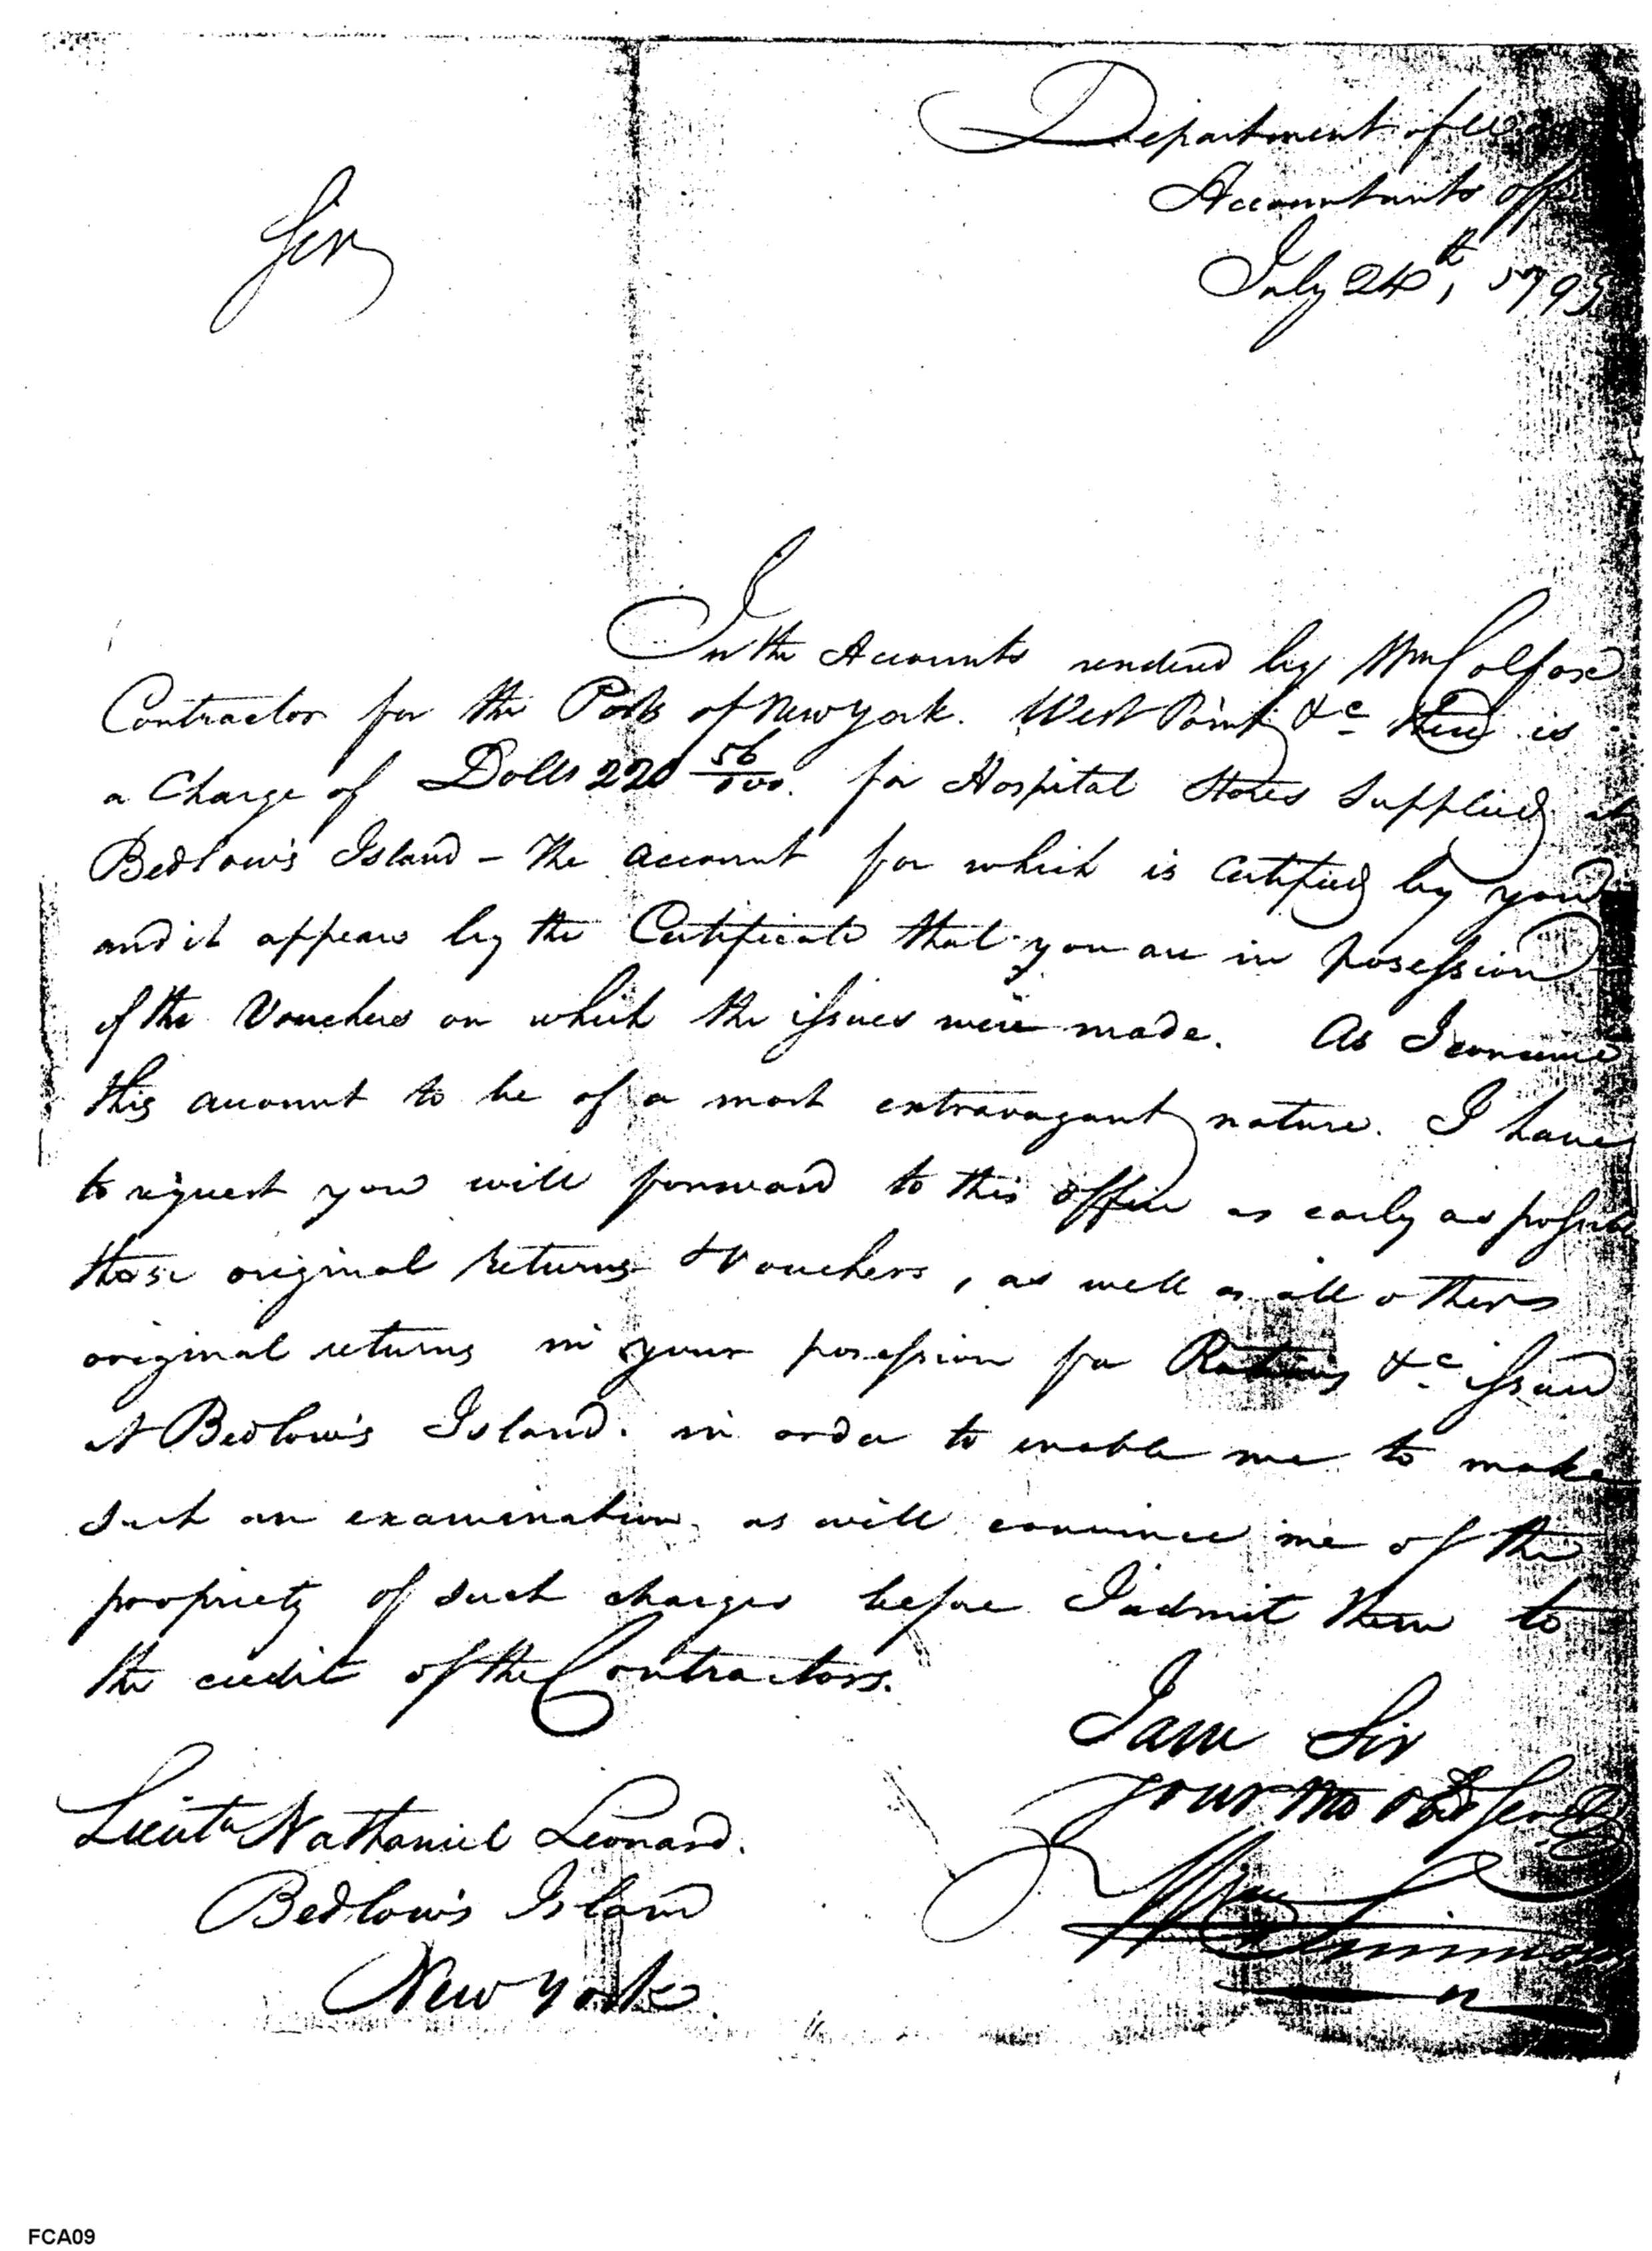 Department of War
Accountants office
July 24th, 1795
Sir
In the Accounts rendered by Wm Colfax
Contractor for the Posts of New york. West Point &c there is
a Charge of Dolls 220 56/100. for Hospital Stores Supplied at
Bedlow's Island - the account for which is Certified by you
and it appears by the Certificate that you are in posession
of the Vouchers on which the issues were made. As I conceive
this account to be of a most extravagant nature. I have
to request you will forward to this office as early as possible
those original returns & Vouchers, as well as all others
original returns in your posession for Rations &c issued
at Bedlow's Island. in order to enable me to make
such an examination, as will convince me of the
propriety of such charges before I admit them to
the credit of the Contractors.
I am Sir
your Mo Obt Servt
Wm Simmons
Lieutn Nathaniel Leonard.
Bedlow's Island
New york
FCA09